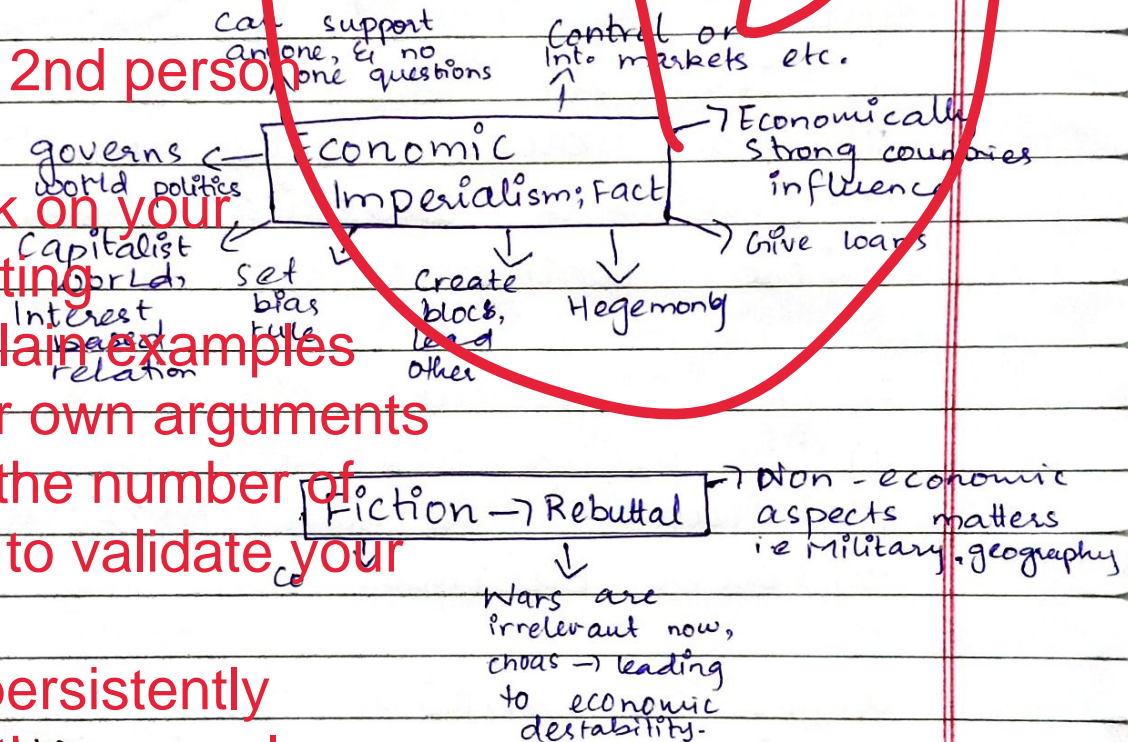 Can support
anyone, & no
one questions
Control or
Into markets etc.
2nd person
Economic
Imperialism; Fact
governs
world politics
Economically
strong countries
influence
k on your
ting
Capitalist
world,
Interest
based
relation
set
bias
rule
Create
blocs,
lead
other
Hegemony
Give loans
lain examples
r own arguments
the number of
to validate your
Fiction → Rebuttal
Non - economic
aspects matters
i.e Military, geography
Co
Wars are
irrelevant now,
choas → leading
to economic
destability.
persistently